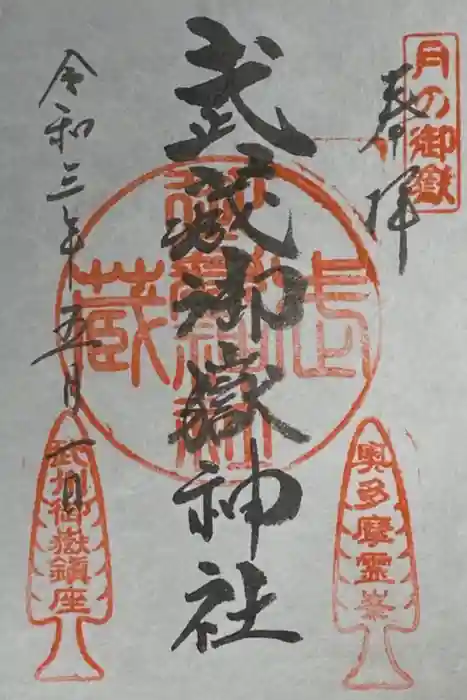 月の御嶽
奉拝
武蔵御嶽神社
令和三年五月一日
奥多摩霊峯
武州御嶽鎮座